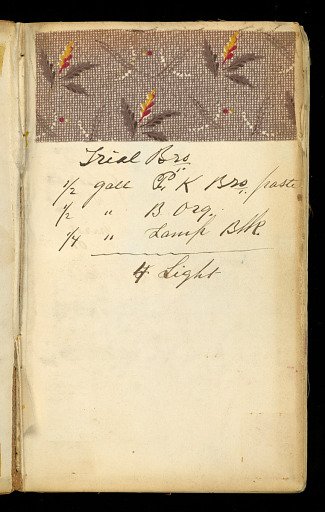 Trial Bro
1/2 gall P. K Bro. paste
1/2 " B Org.
1/4 " Lamp Blk.
4 Light